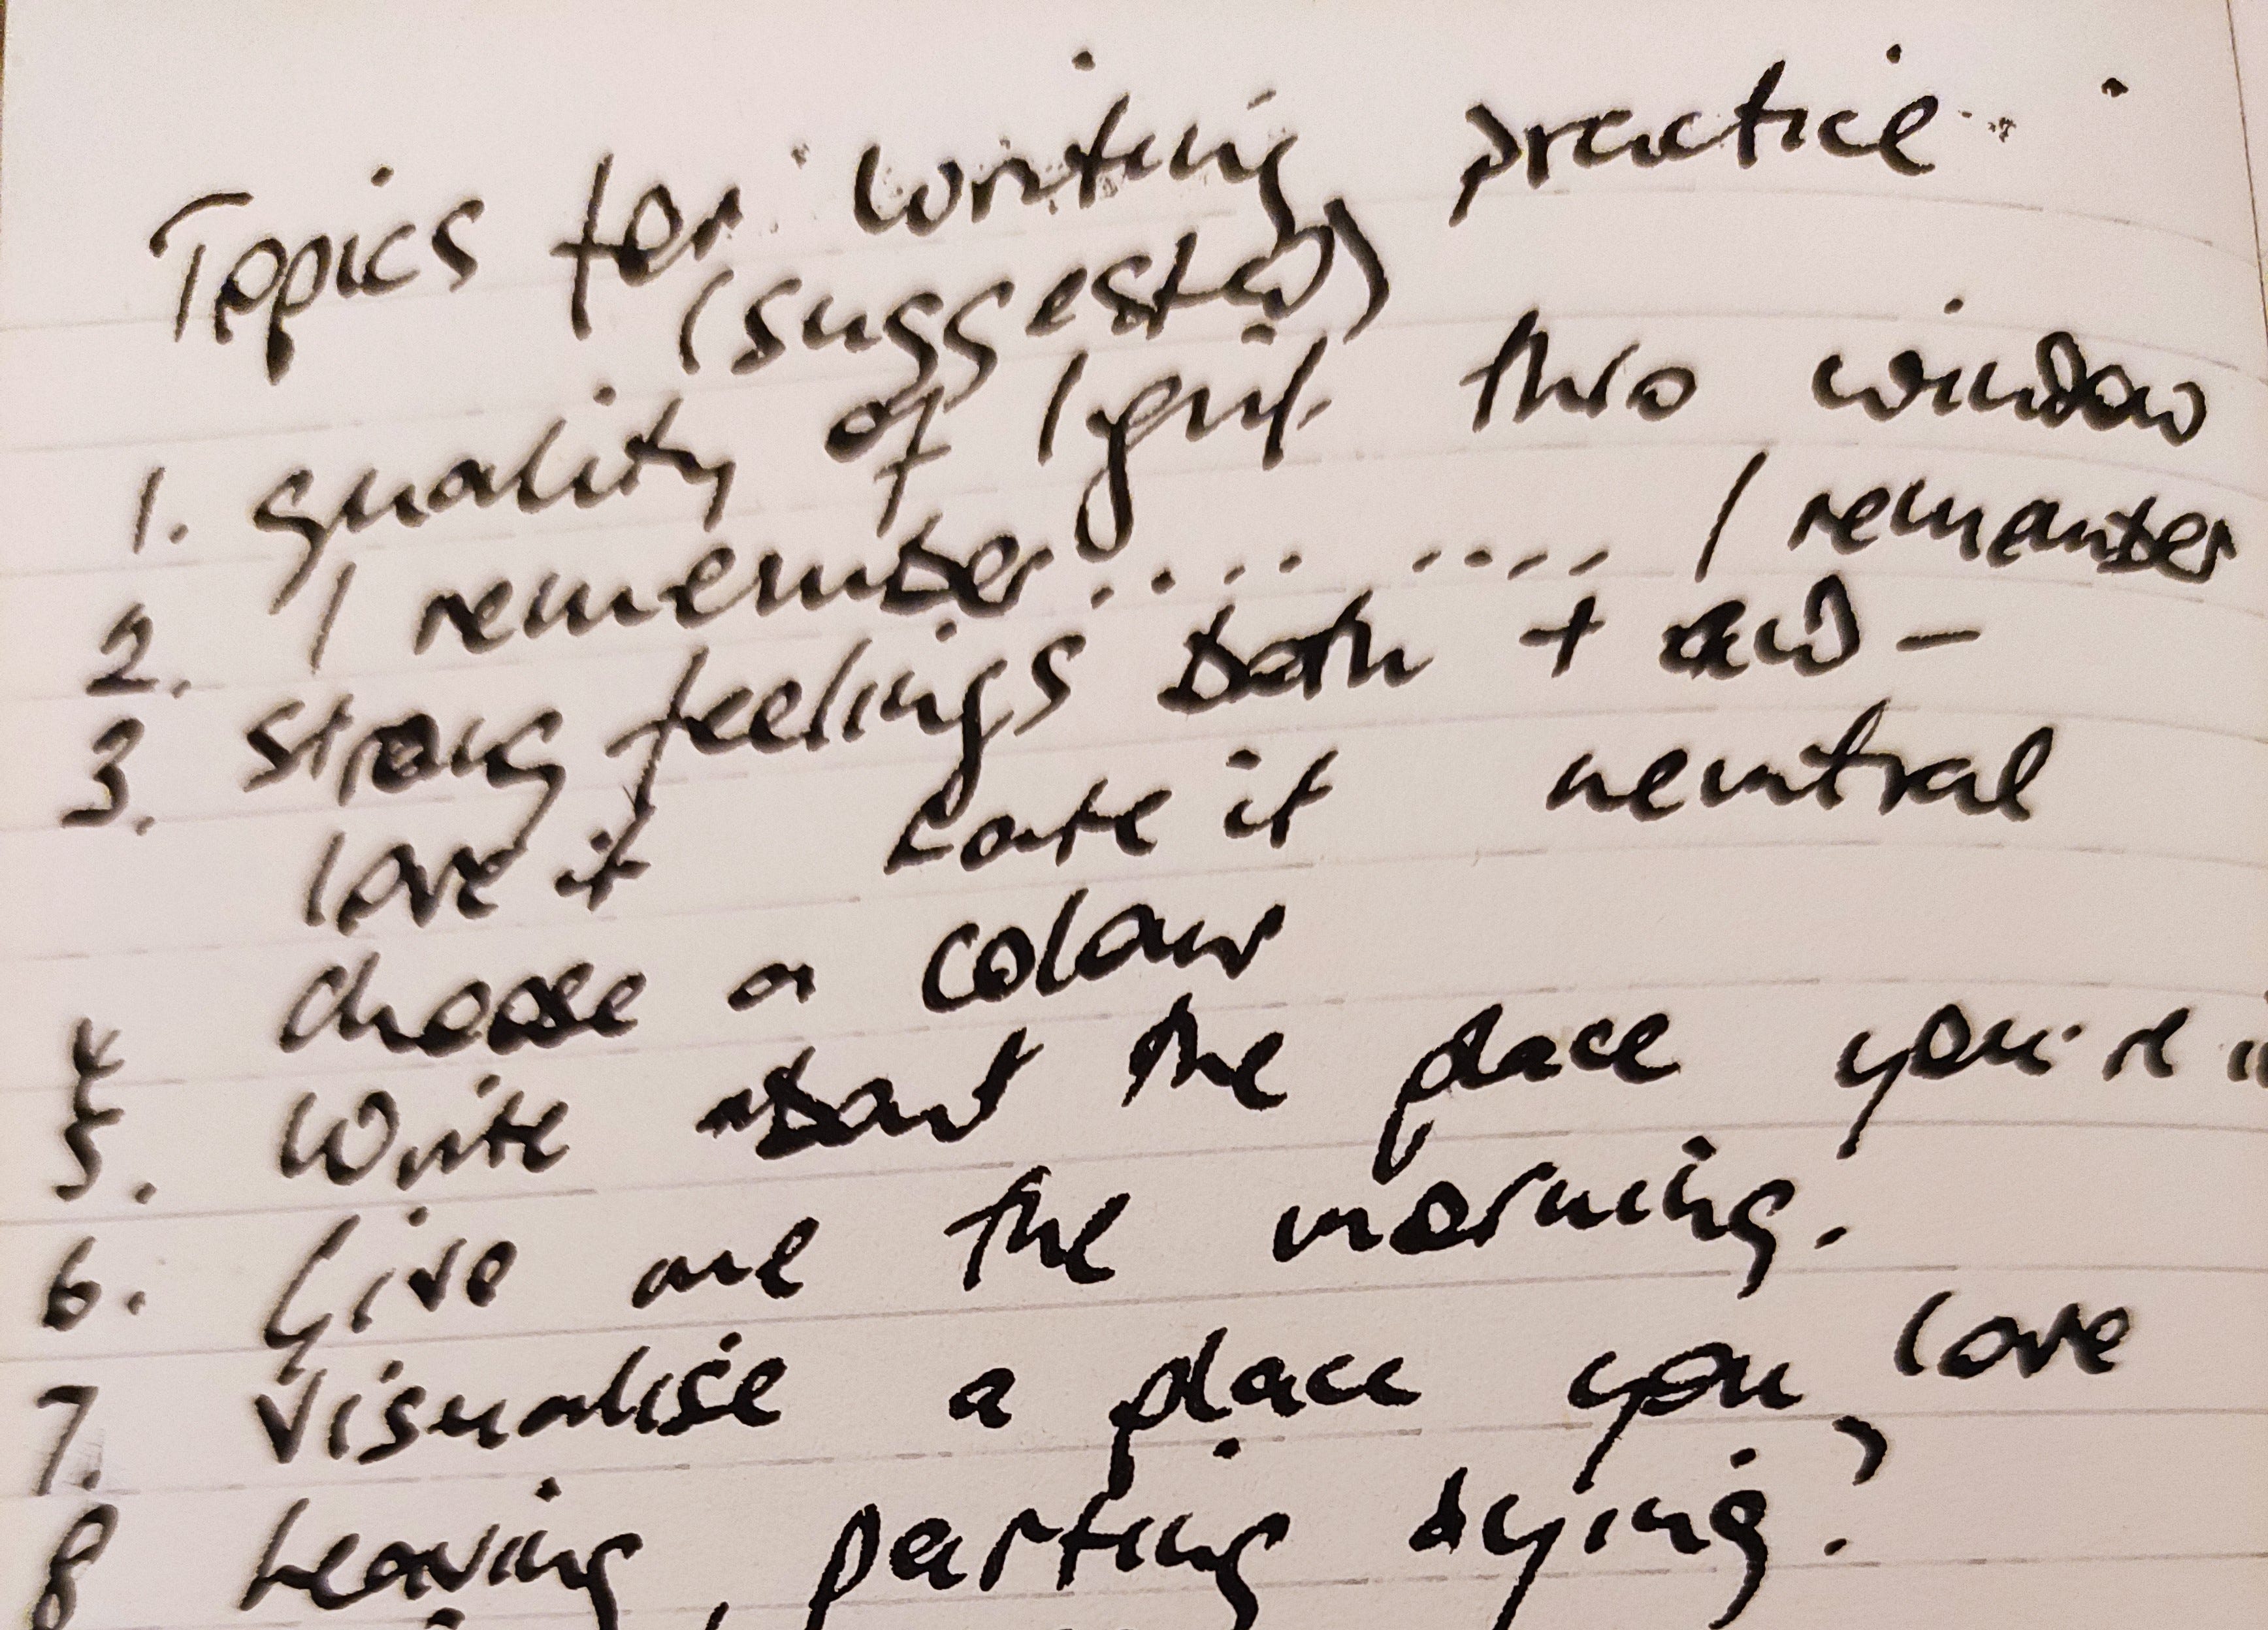 Topics for writing practice
(suggested)
1. quality of light thro window
2. I remember......... I remember
3. strong feelings both + and -
love it hate it neutral
4 choose a colour
5. Write about the place you're
6. Give me the morning.
7. Visualise a place you love
8 Leaving, parting dying?